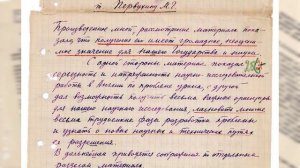 т. Первухину М.Г.
Произведенное мной рассмотрение материала пока-
зало, что получение его имеет громадное, неоцени-
мое значение для нашего Государства и науки.
С одной стороны материал показал
серьезность и напряженность научно-исследовательской
работы в Англии по проблеме урана, с другой
дал возможность получить весьма важные ориентиры
для нашего научного исследования, миновать многие
весьма трудоемкие фазы разработки проблемы
и узнать о новых научных и технических путях
ее разрешения.
В дальнейшем приводятся соображения по отдельным
разделам материала.